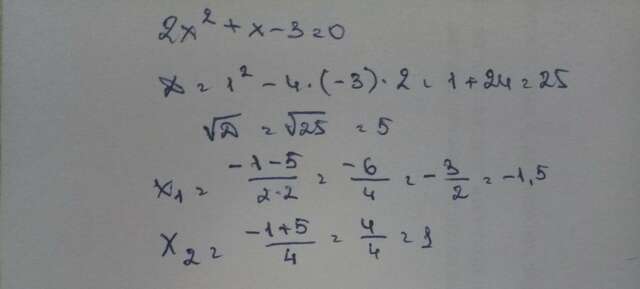 2x² + x - 3 = 0
D = 1² - 4 · (-3) · 2 = 1 + 24 = 25
√D = √25 = 5
x₁ = (-1-5)/(2·2) = -6/4 = -3/2 = -1,5
x₂ = (-1+5)/4 = 4/4 = 1